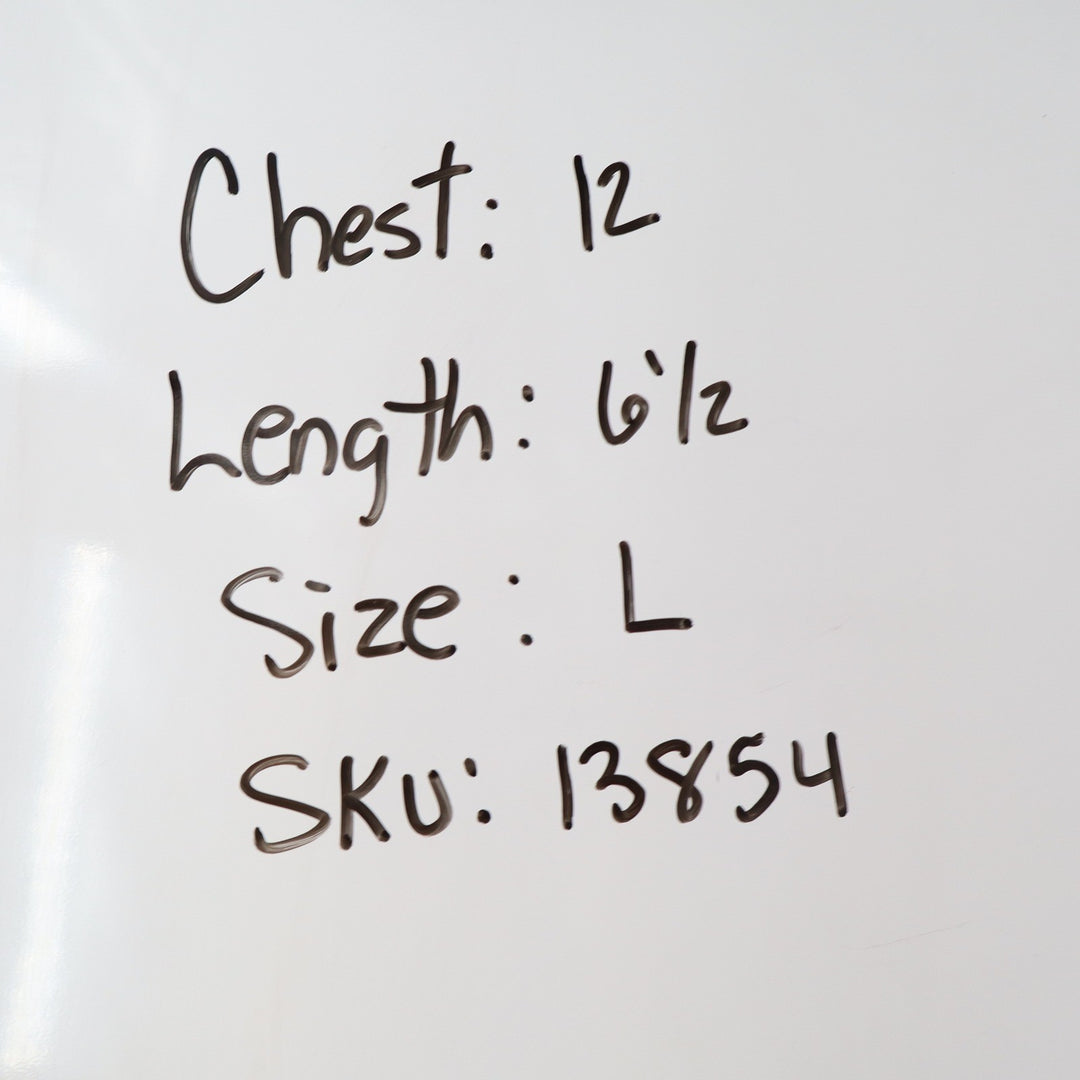 Chest: 12
Length: 6 1/2
Size: L
SKU: 13854